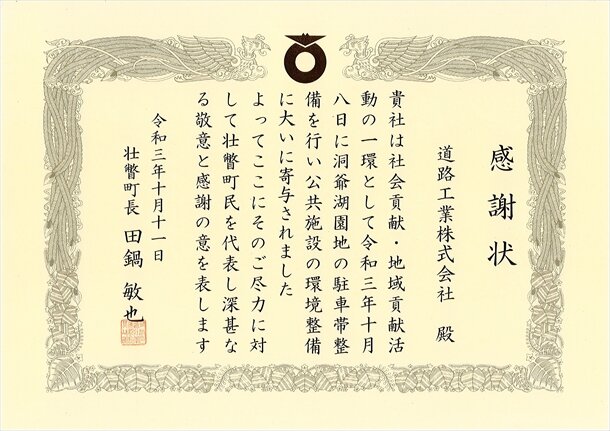 感謝状
道路工業株式会社 殿
貴社は社会貢献・地域貢献活
動の一環として令和三年十月
八日に洞爺湖園地の駐車帯整
備を行い公共施設の環境整備
に大いに寄与されました
よってここにそのご尽力に対
して壮瞥町民を代表し深甚な
る敬意と感謝の意を表します
令和三年十月十一日
壮瞥町長 田鍋 敏也